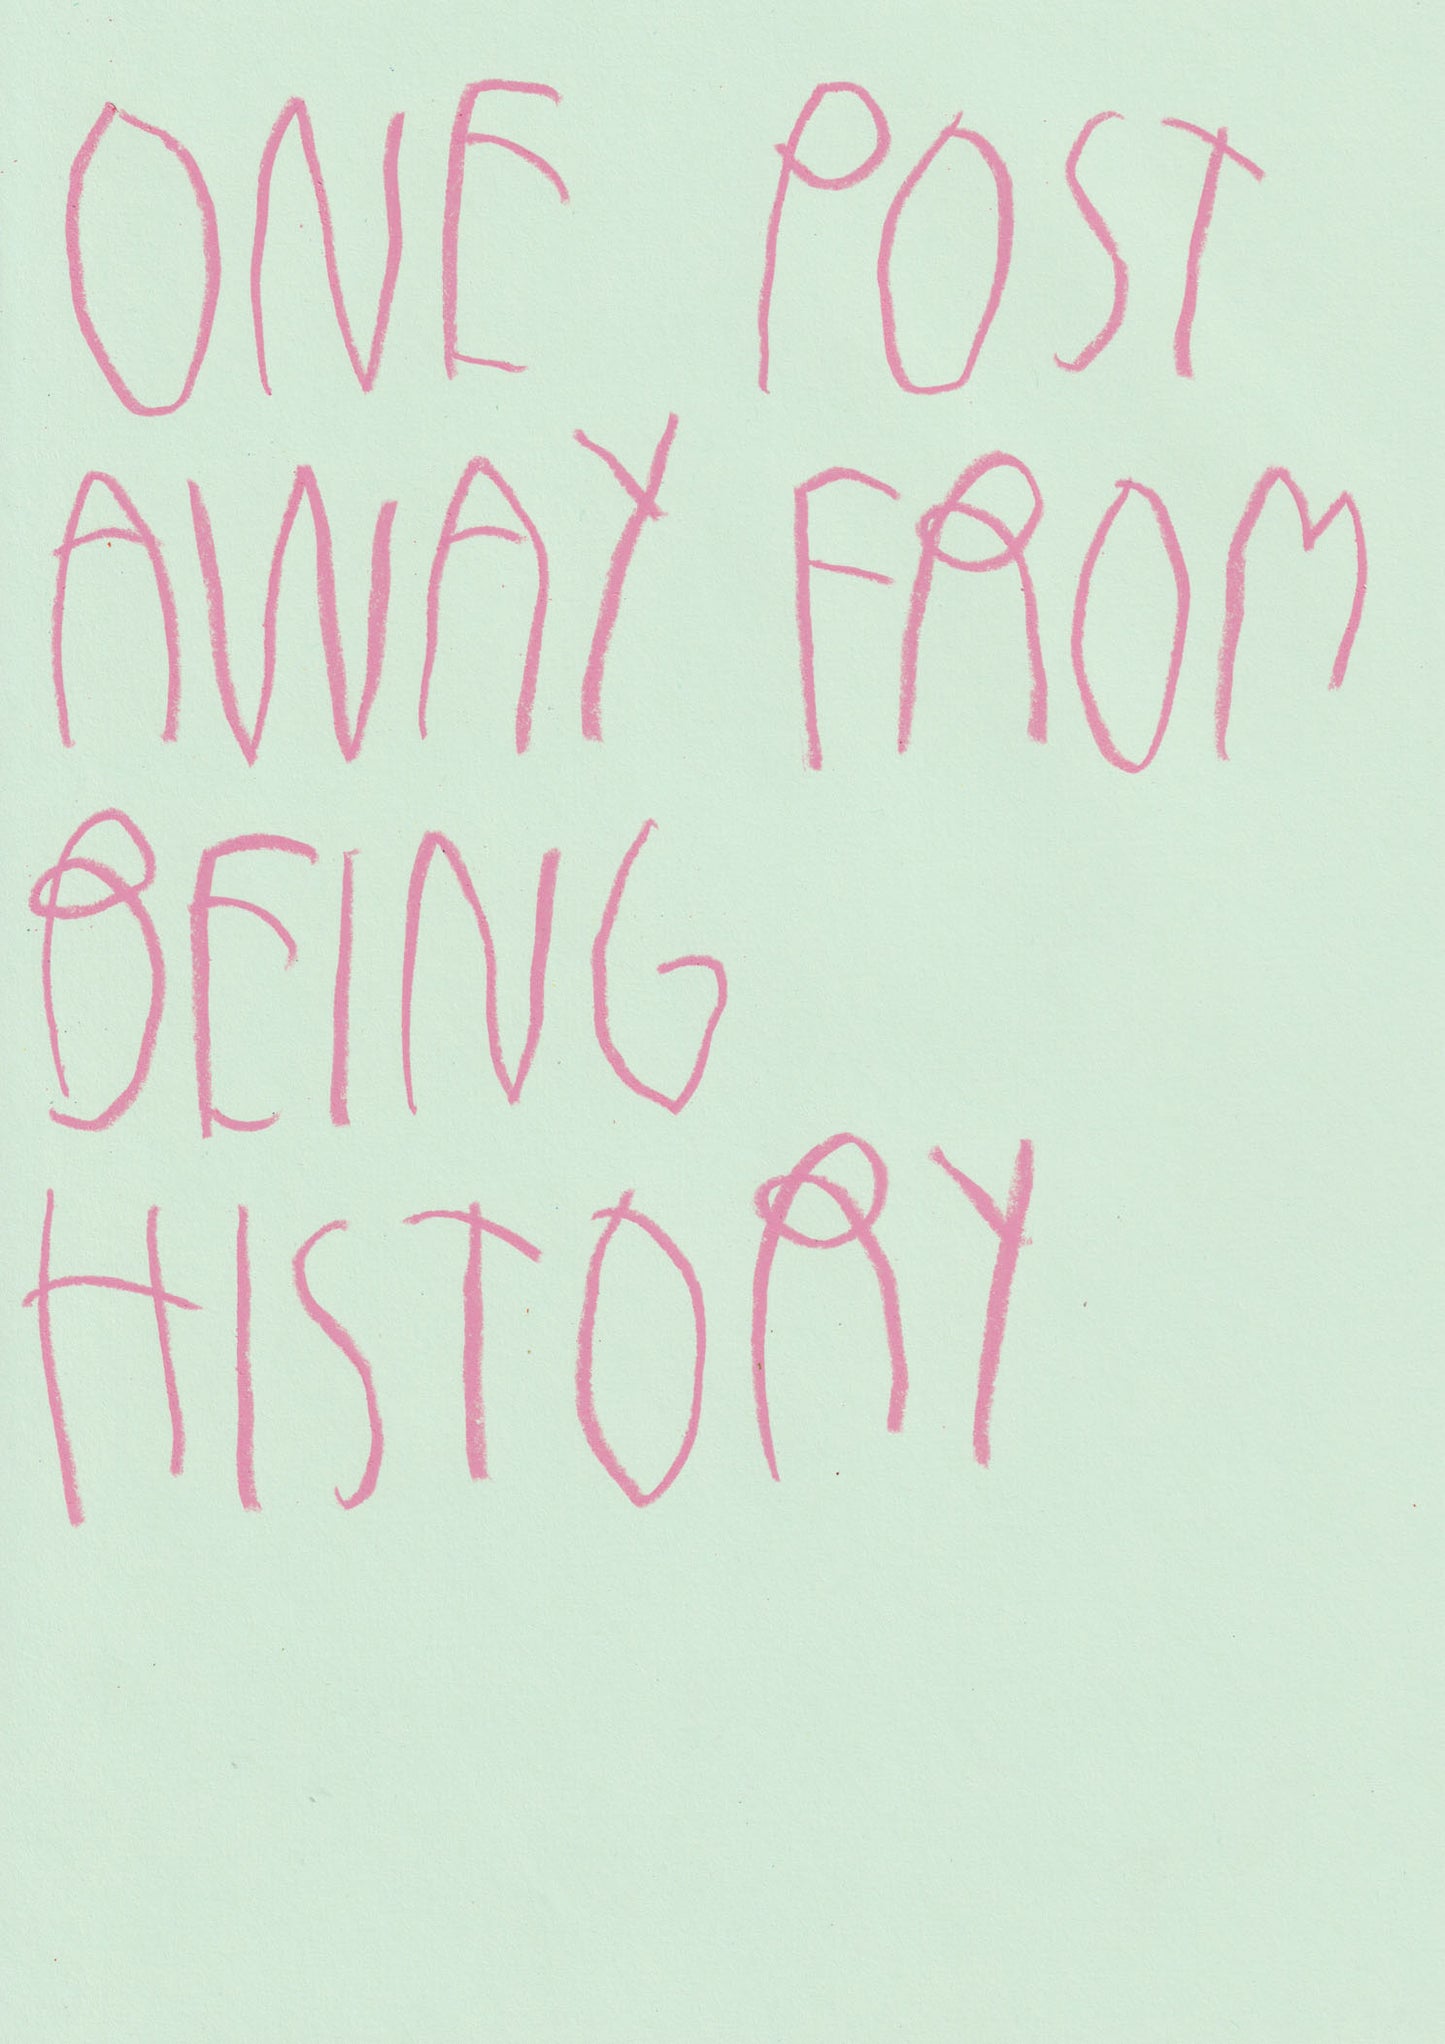 ONE POST
AWAY FROM
BEING
HISTORY